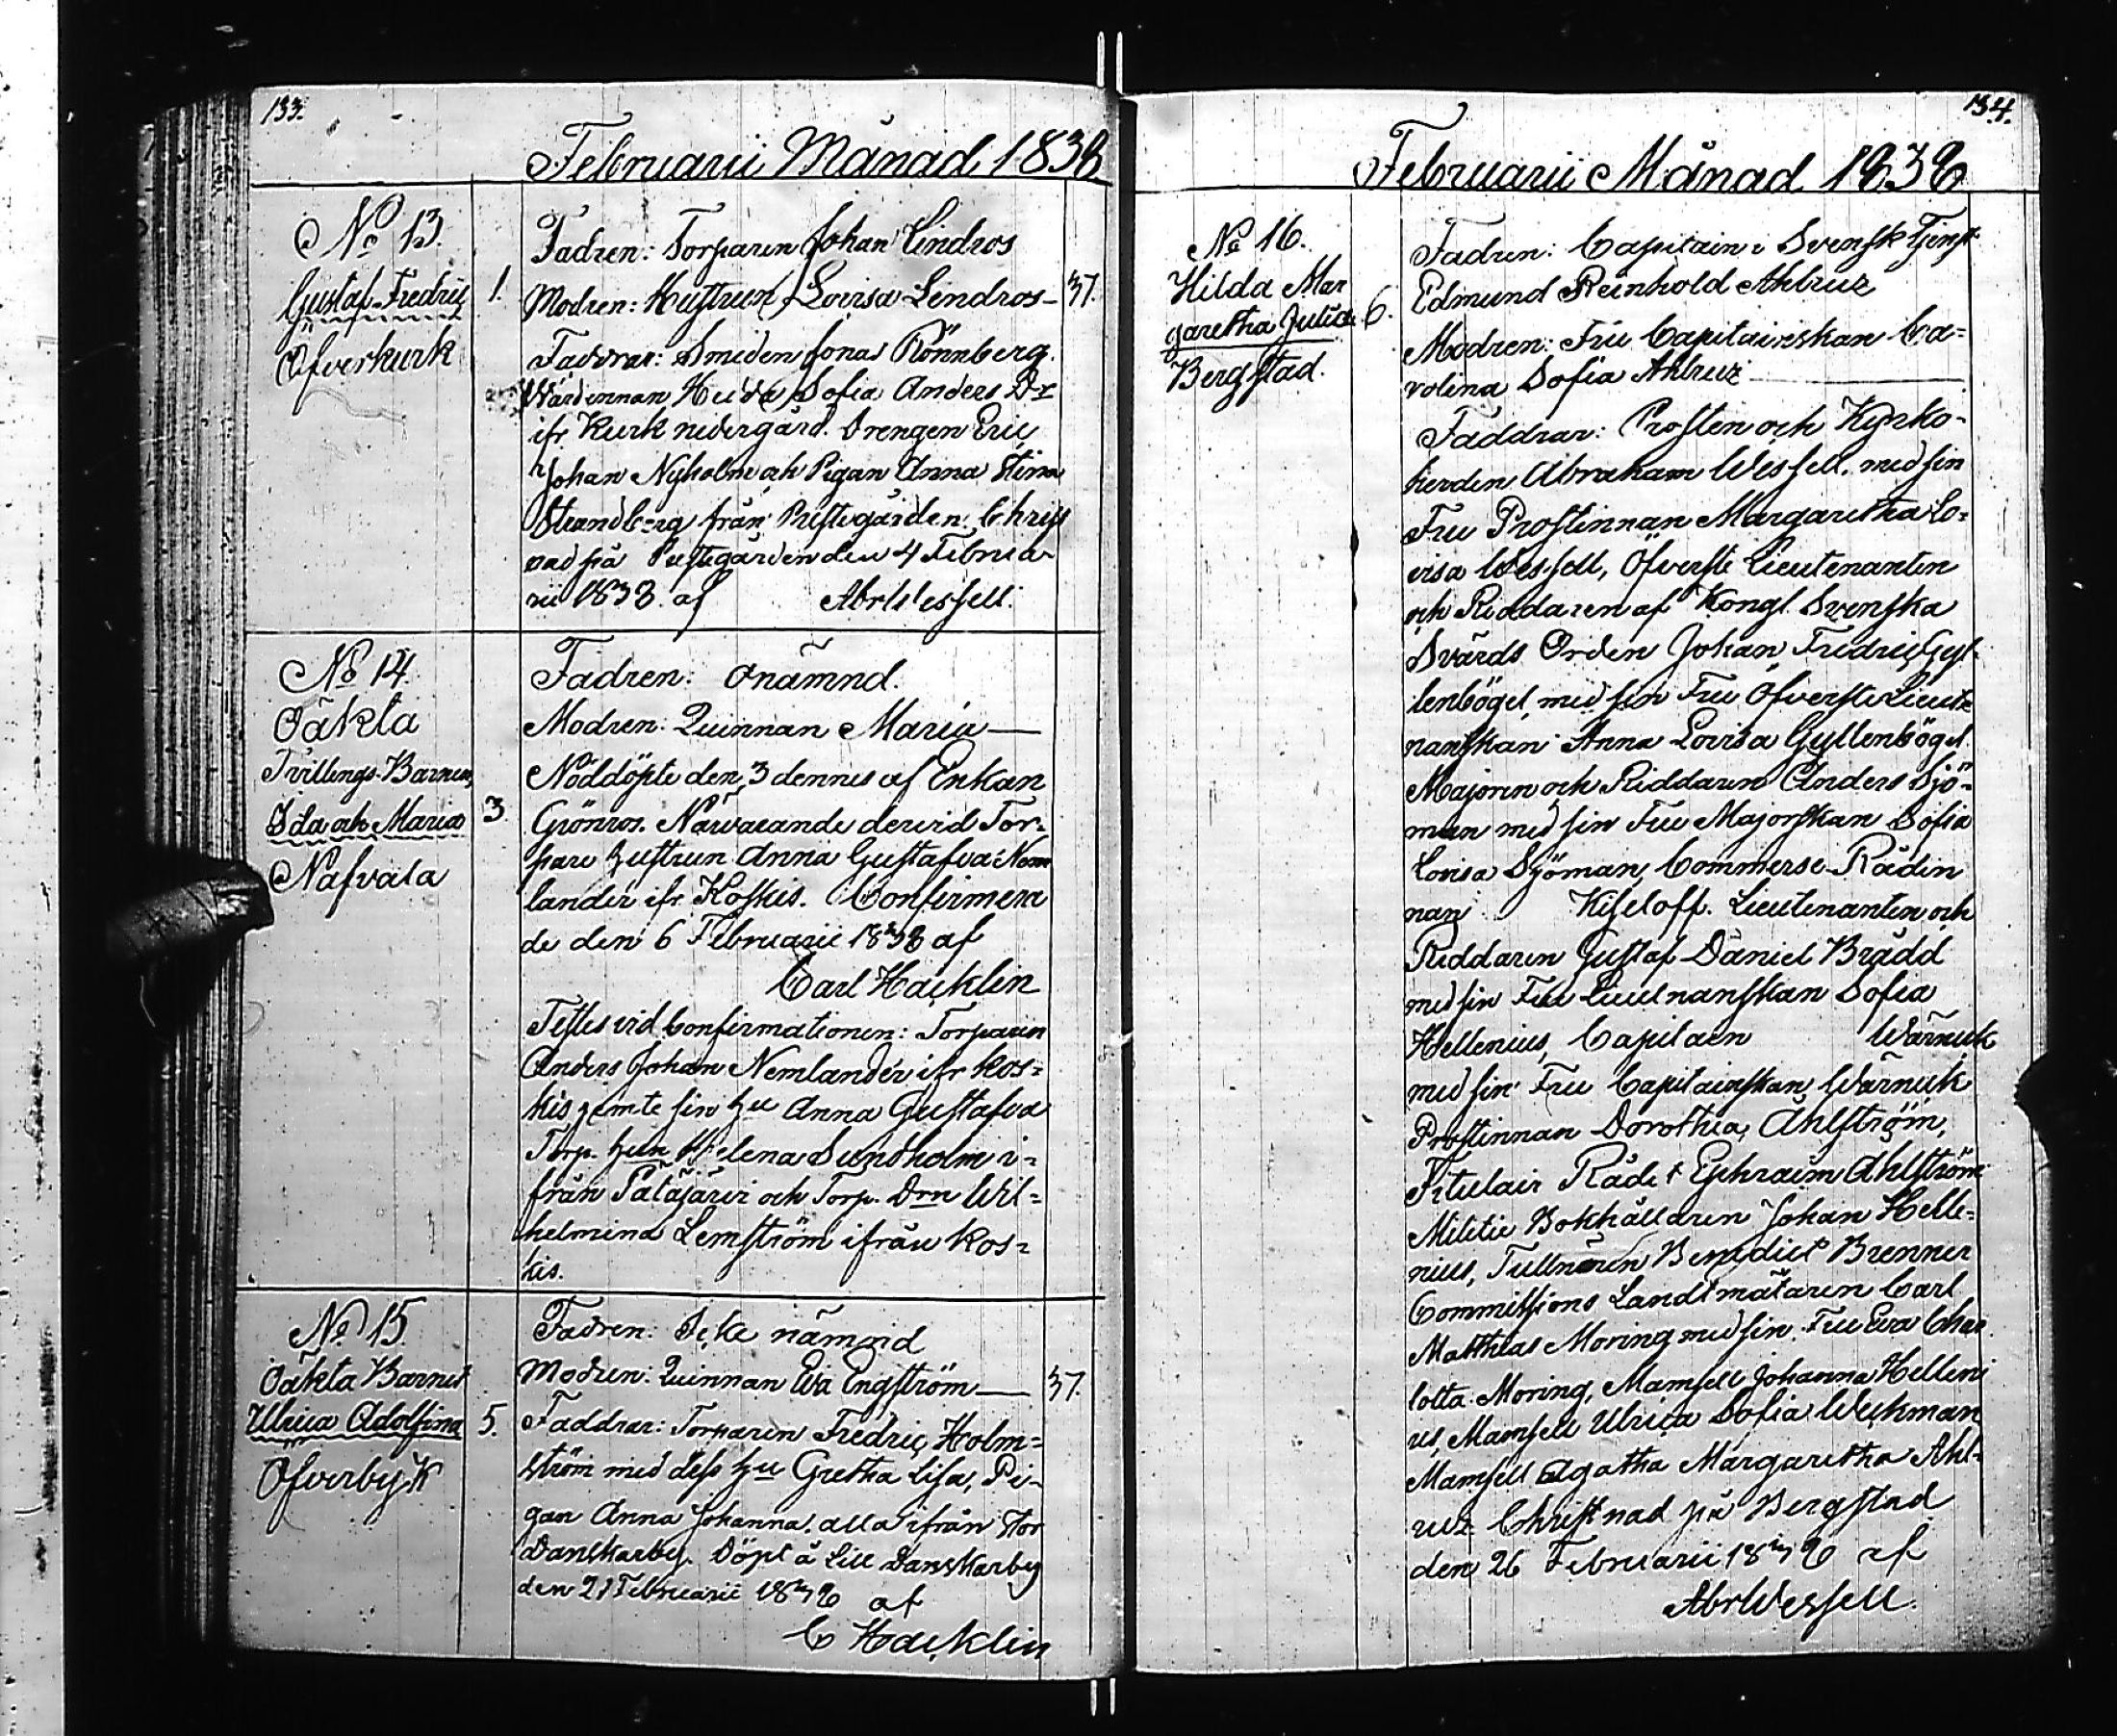 133.
Februarii Månad 1838
No 13.
Gustaf Fredric
Öfverkurk
1.
Fadren: Torparen Johan Lindros
Modren: Hustrun Lovisa Lindros – 37.
Faddrar: Smeden Jonas Rönnberg.
Värdinnan Hedda Sofia Anders Dr
ifr Kurk nedergård. Drengen Eric
Johan Nyholm och Pigan Anna Stina
Strandberg från Prestegården. Christ
nad på Prestegården den 4 Februa
rii 1838. af Abr Wessell.
No 14.
Oäkta
Tvillings-Barnen,
Ida och Maria
Nafvala
3.
Fadren: Onämnd.
Modren: Quinnan Maria —
Nöddöpte den 3 dennes af Enkan
Grönros. Närvarande dervid Tor-
pare hustrun Anna Gustafva Nem
lander ifr. Koskis. Confirmera
de den 6 Februarii 1838 af
Carl Hacklin
Testes vid Confirmationen: Torparen
Anders Johan Nemlander ifr Kos=
kis jemte sin hu Anna Gustafva
Torp. hun Helena Sundholm i-
från Patajärvi och Torp. Drn Wil=
helmina Lemström ifrån Kos=
kis.
No 15.
Oäkta Barnet
Ulrica Adolfina
Öfverby K
5.
Fadren: Icke nämnd
Modren: Quinnan Eva Engström — 37.
Faddrar: Torparen Fredric Holm=
ström med dess hu Gretha Lisa, Pi-
gan Anna Johanna. alla ifrån Stor
Danskarby. Döpt å Lill Danskarby
den 21 Februarii 1838 af
C Hacklin
134.
Februarii Månad 1838
No 16.
Hilda Mar
garetha Julia
Bergstad.
6.
Fadren: Capitain i Svensk Tjenst
Edmund Reinhold Ahlruz
Modren: Fru Capitainskan Ca=
rolina Sofia Ahlruz
Faddrar: Prosten och Kyrko-
herden Abraham Wessell. med sin
Fru Prostinnan Margaretha Lo-
visa Wessell, Öfverste Lieutenanten
och Riddaren af Kongl. Svenska
Svärds Orden Johan Fredric Gyl
lenbögel, med sin Fru Öfverste Lieute
nanskan Anna Lovisa Gyllenbögel.
Majoren och Riddaren Anders Sjö-
man med sin Fru Majorskan Sofia
Lovisa Sjöman, Commerse-Rådin
nan Kiseloff. Lieutenanten och
Riddaren Gustaf Daniel Brådd
med sin Fru Lieutnanskan Sofia
Hellenius, Capitain Wärnuk
med sin Fru Capitainskan Wärnuk
Prostinnan Dorothea Ahlström,
Titulair Rådet Ephraim Ahlström
Militie Bokhållaren Johan Helle-
nius, Tullnären Benedict Brenner
Commissions Landtmätaren Carl
Matthias Moring med sin Fru Eva Char
lotta Moring, Mamsell Johanna Helleni
us, Mamsell Ulrica Sofia Weckman
Mamsell Agatha Margaretha Ahl-
ruz Christnad på Bergstad
den 26 Februarii 1838 af
Abr Wessell.